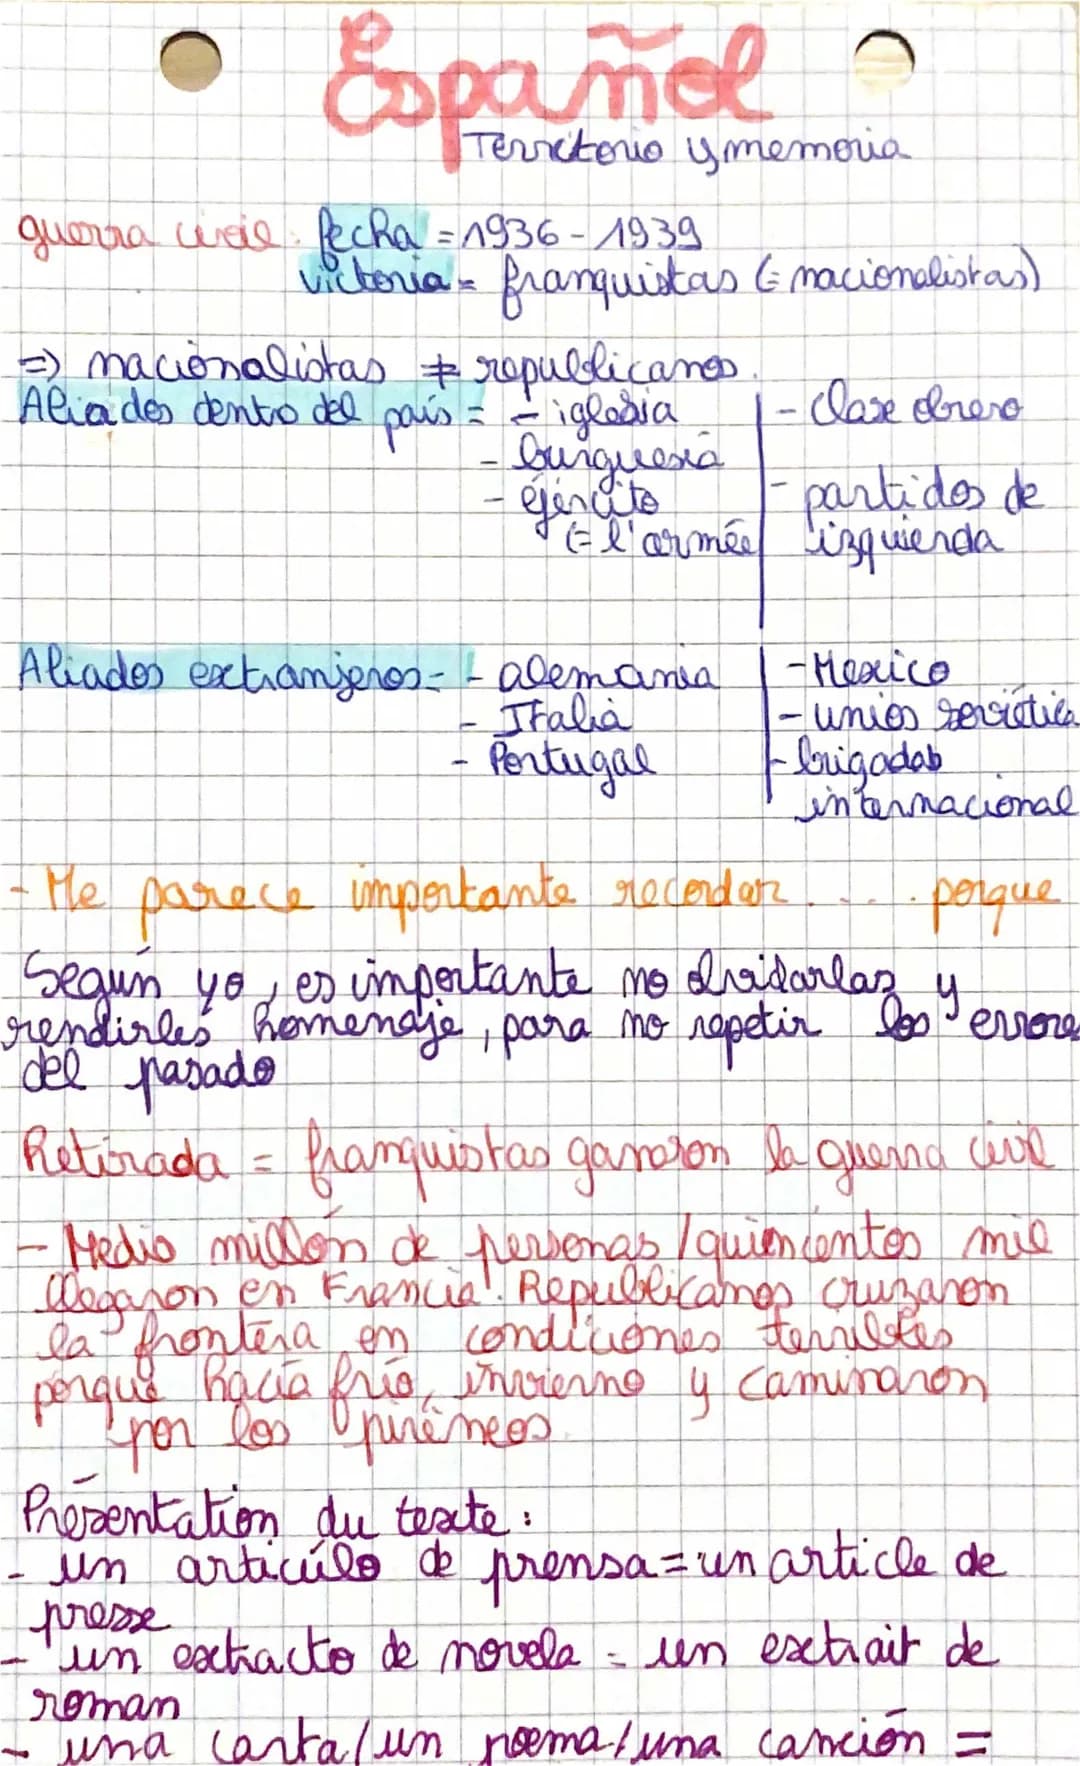 Español
Territorio y memoria
guerra civil : fecha = 1936 - 1939
victoria = franquistas (= nacionalistas)
=> nacionalistas ≠ republicanos.
Aliados dentro del país = - iglesia | - Clase obrero
- burguesía
- éjército | - partidos de
(= l'armée | izquierda
Aliados extranjeros = - alemania | - Mexico
- Italia | - unios soviética
- Portugal | - brigadas
internacional
- Me parece importante recordar . ... . porque
Según yo, es importante no olvidarlas y
rendirles homenaje, para no repetir los errores
del pasado
Retirada = franquistas ganaron la guerra civil
- Medio millón de personas / quiencentos mil
llegaron en Francia. Republicanos cruzaron
la frontera en condiciones terribles
porque hacía frío, invierno y caminaron
por los pirêneos.
Présentation du texte :
- un articúlo de prensa = un article de
presse
- un extracto de novela = un extrait de
roman
- una carta / un poema / una canción =